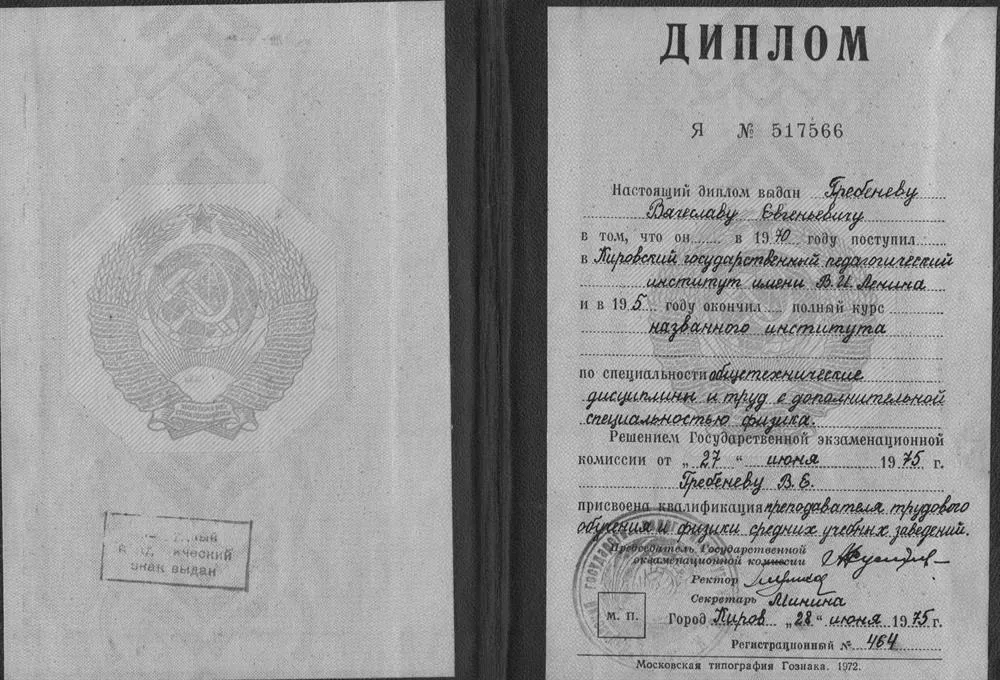 ный
ический
знак выдан
ДИПЛОМ
Я № 517566
Настоящий диплом выдан Гребеневу
Вячеславу Евгеньевичу
в том, что он в 1970 году поступил
в Кировский государственный педагогический
институт имени В.И. Ленина
и в 19 5 году окончил полный курс
названного института
по специальности общетехнические
дисциплины и труд с дополнительной
специальностью физика.
Решением Государственной экзаменационной
комиссии от „27" июня 1975 г.
Гребеневу В.Е.
присвоена квалификация преподавателя трудового
обучения и физики средних учебных заведений.
Председатель Государственной
экзаменационной комиссии
Ректор
Секретарь Минина
М. П.
Город Киров „28" июня 1975 г.
Регистрационный № 464
Московская типография Гознака. 1972.